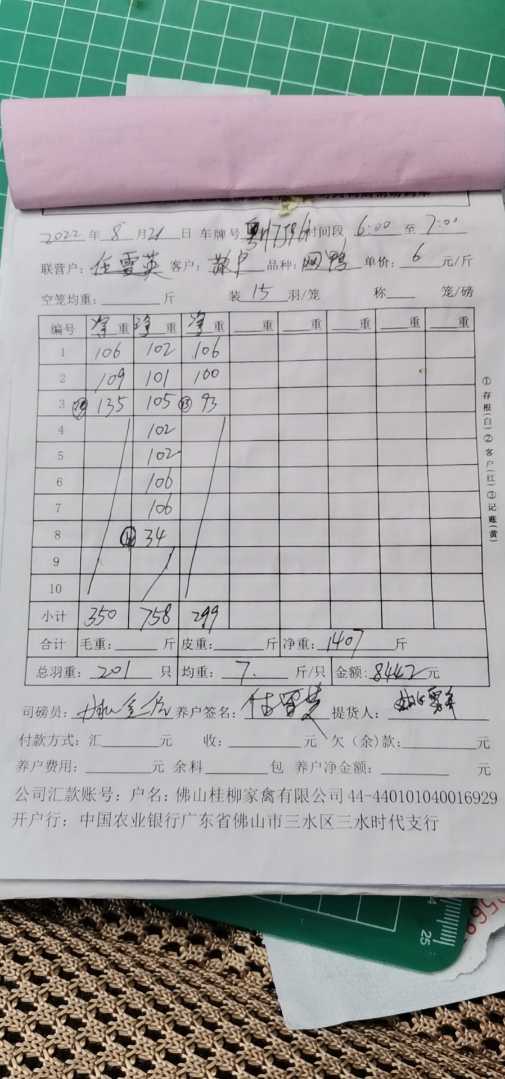 2022 年 8 月 21 日 车牌号 时间段 6:00 至 7:00
联营户: 任雪英 客户: 散户 品种: 网鸭 单价: 6 元/斤
空笼均重: 斤 装 15 羽/笼 称 笼/磅
编号 净重 净重 净重 重 重 重 重
1 106 102 106
2 109 101 100
3 135 105 93
4 102
5 102
6 106
7 106
8 34
9
10
小计 350 758 299
合计 毛重: 斤 皮重: 斤 净重: 1407 斤
总羽重: 201 只 均重: 7. 斤/只 金额: 8442 元
司磅员: 养户签名: 任雪英 提货人:
付款方式: 汇 元 收: 元 欠(余)款: 元
养户费用: 元 余料 包 养户净金额: 元
公司汇款账号: 户名: 佛山桂柳家禽有限公司 44-440101040016929
开户行: 中国农业银行广东省佛山市三水区三水时代支行
①存根(白)②客户(红)③记账(黄)
25